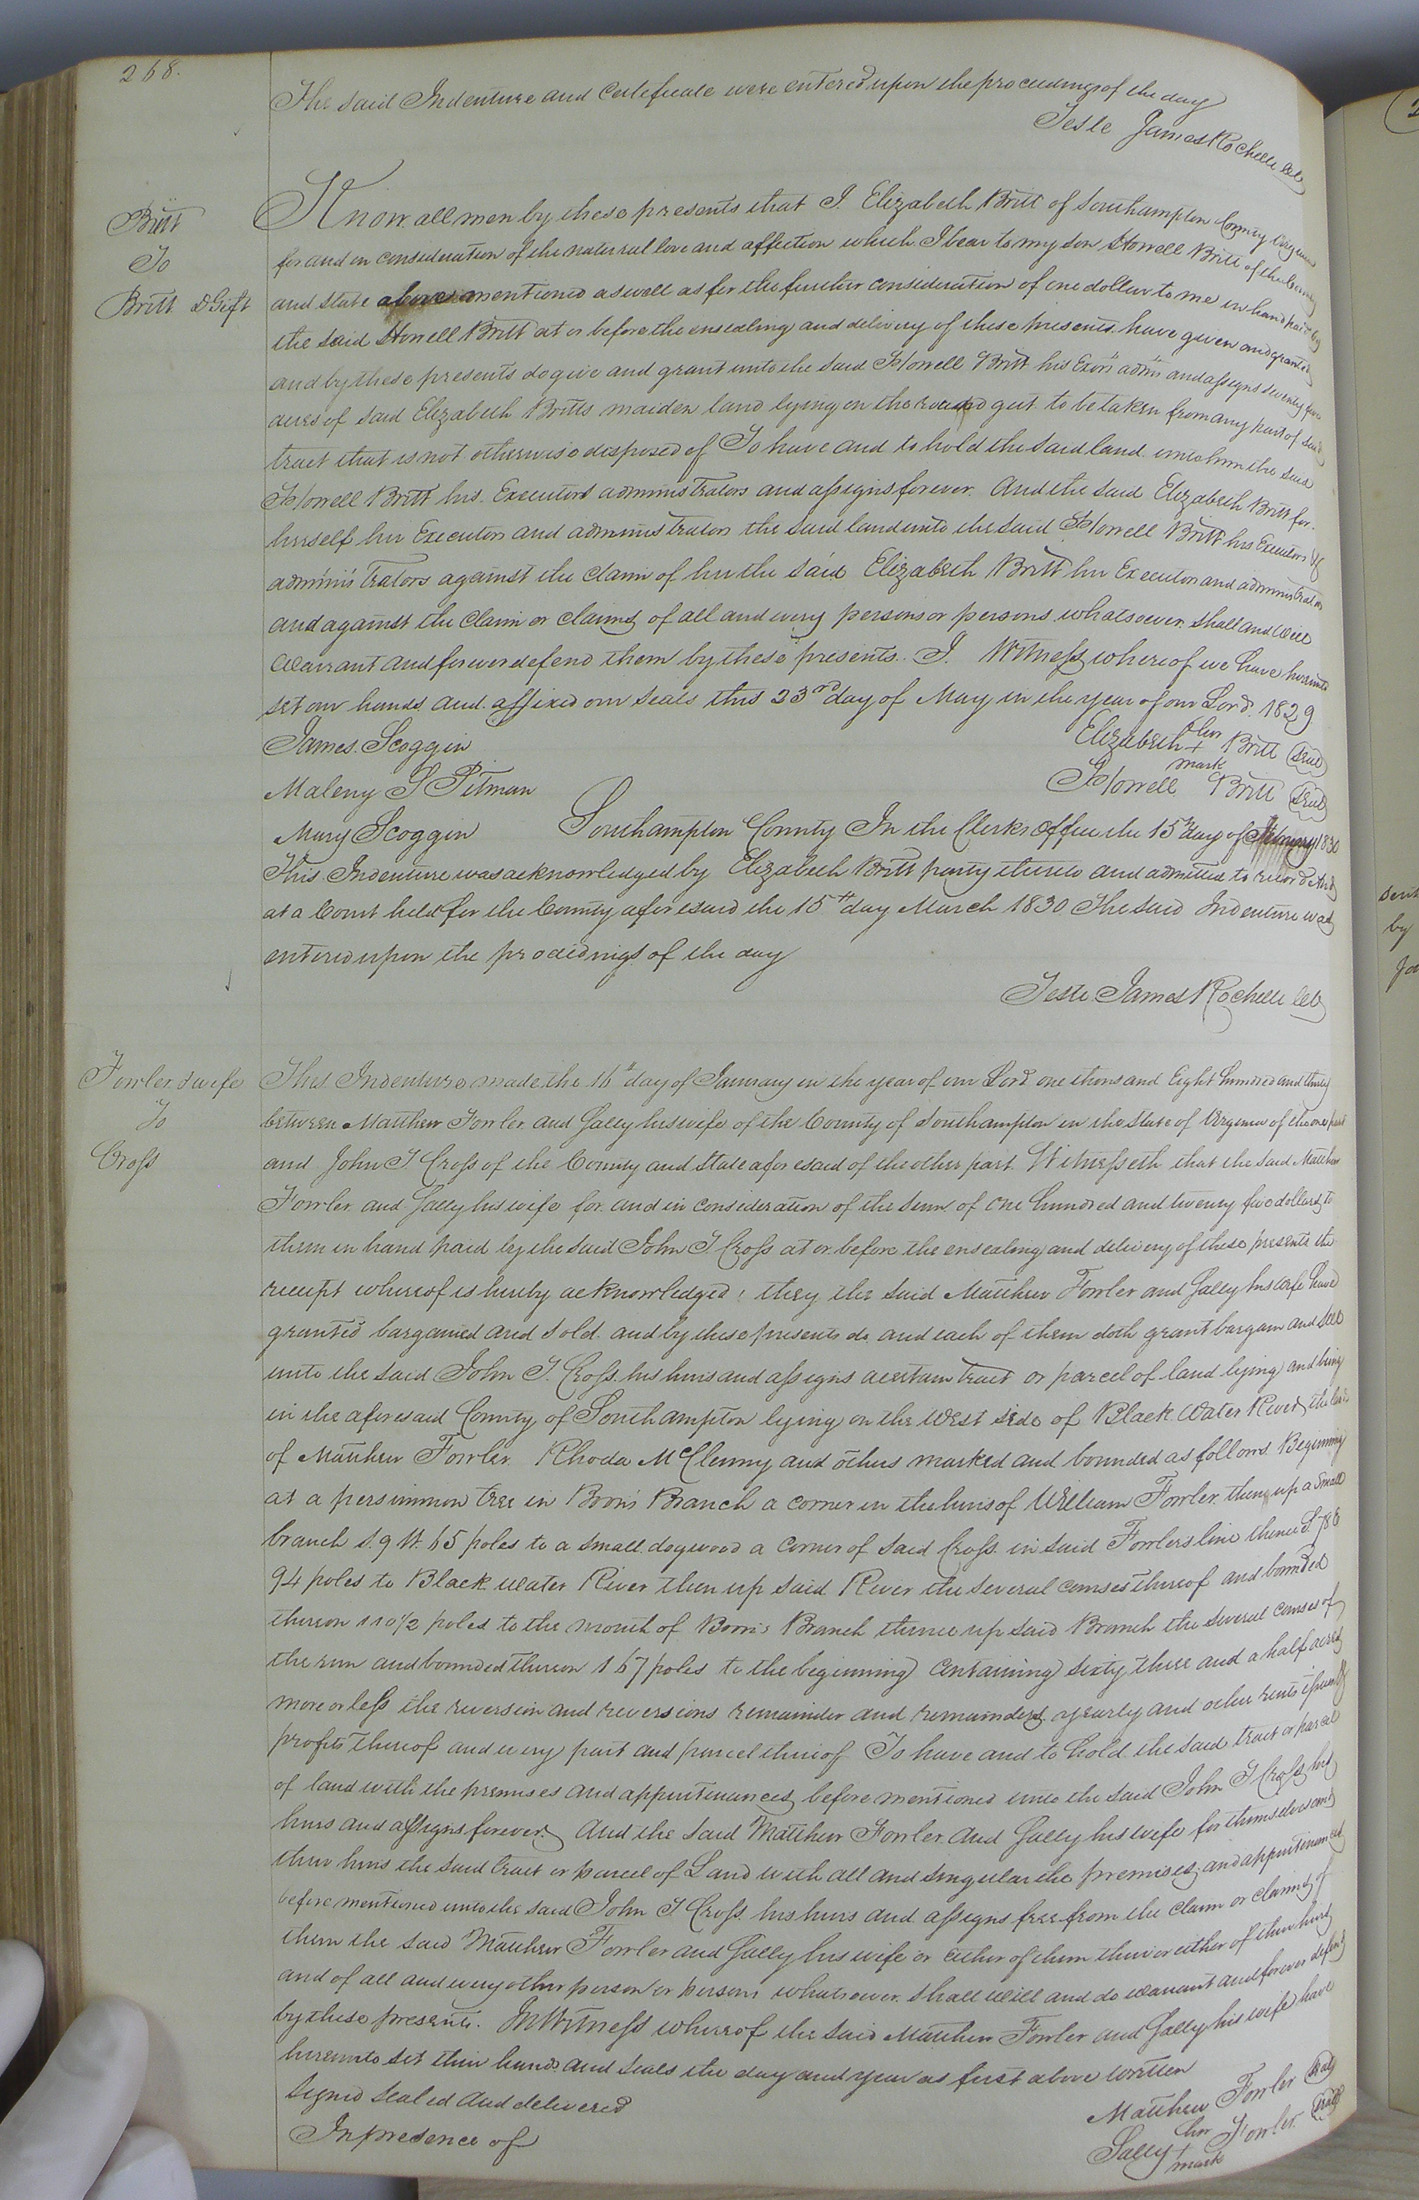 268.
The said Indenture and Certificate were entered upon the proceedings of the day
Teste James Rochelle Clk
Britt
To
Britt D Gift
Know all men by these presents that I Elizabeth Britt of Southampton County Virginia
for and in consideration of the natural love and affection which I bear to my son Howell Britt of the County
and State above mentioned as well as for the further consideration of one dollar to me in hand paid by
the said Howell Britt at or before the ensealing and delivery of these presents have given and granted
and by these presents do give and grant unto the said Howell Britt his Exors admrs and assigns seventy five
acres of said Elizabeth Britts maiden land lying on the round gut to be taken from any part of said
tract that is not otherwise disposed of To have and to hold the said land unto him the said
Howell Britt his Executors administrators and assigns forever. And the said Elizabeth Britt for
herself her Executors and administrators the said land unto the said Howell Britt his Executors &
administrators against the claim of her the said Elizabeth Britt her Executors and administrators
and against the Claim or claims of all and every persons or persons whatsoever shall and will
warrant and forever defend them by these presents. I Witness whereof we have hereunto
set our hands and affixed our seals this 23rd day of May in the year of our Lord 1829
James Scoggin
Elizabeth her + mark Britt (Seal)
Maleny S Pitman
Howell Britt (Seal)
Mary Scoggin Southampton County In the Clerks Office the 15th day of February 1830
This Indenture was acknowledged by Elizabeth Britt party thereto and admitted to record And
at a Court held for the County aforesaid the 15th day March 1830 The said Indenture was
entered upon the procedings of the day
Teste James Rochelle Clk
Fowler & wife
To
Cross
This Indenture made the 16th day of January in the year of our Lord one thousand Eight hundred and thirty
between Matthew Fowler and Sally his wife of the County of Southampton in the State of Virginia of the one part
and John T Cross of the County and State aforesaid of the other part Witnesseth that the said Matthew
Fowler and Sally his wife for and in consideration of the sum of one hundred and twenty five dollars to
them in hand paid by the said John T Cross at or before the ensealing and delivery of these presents the
receipt whereof is hereby acknowledged, they the said Matthew Fowler and Sally his wife have
granted bargained and sold and by these presents do and each of them doth grant bargain and sell
unto the said John T. Cross his heirs and assigns a certain tract or parcel of land lying and being
in the aforesaid County of Southampton lying on the West side of Black Water River, the land
of Matthew Fowler Rhoda McClenny and others marked and bounded as follows. Beginning
at a persimmon tree in Boon's Branch a corner in the lines of William Fowler, then up a small
branch S. 9 W. 65 poles to a small dogwood a corner of said Cross in said Fowlers line thence S. 78 E
94 poles to Black water River then up said River the several courses thereof and bounded
thereon 110 1/2 poles to the mouth of Boon's Branch thence up said Branch the several courses of
the run and bounded thereon 167 poles to the beginning Containing sixty three and a half acres
more or less the reversion and reversions remainder and remainders yearly and other rents issues &
profits thereof and every part and parcel thereof To have and to hold the said tract or parcel
of land with the premises and appurtenances before mentioned unto the said John T Cross his
heirs and assigns forever. And the said Matthew Fowler and Sally his wife for themselves and
their heirs the said tract or parcel of Land with all and singular the premises and appurtenances
before mentioned unto the said John T Cross his heirs and assigns free from the claim or claims of
them the said Matthew Fowler and Sally his wife or either of them their or either of their heirs
and of all and every other person or persons whatsoever shall will and do warrant and forever defend
by these presents. In Witness whereof the said Matthew Fowler and Sally his wife have
hereunto set their hands and seals the day and year as first above written
Signed Sealed and delivered
Matthew Fowler (Seal)
In presence of
Sally her + mark Fowler (Seal)
by